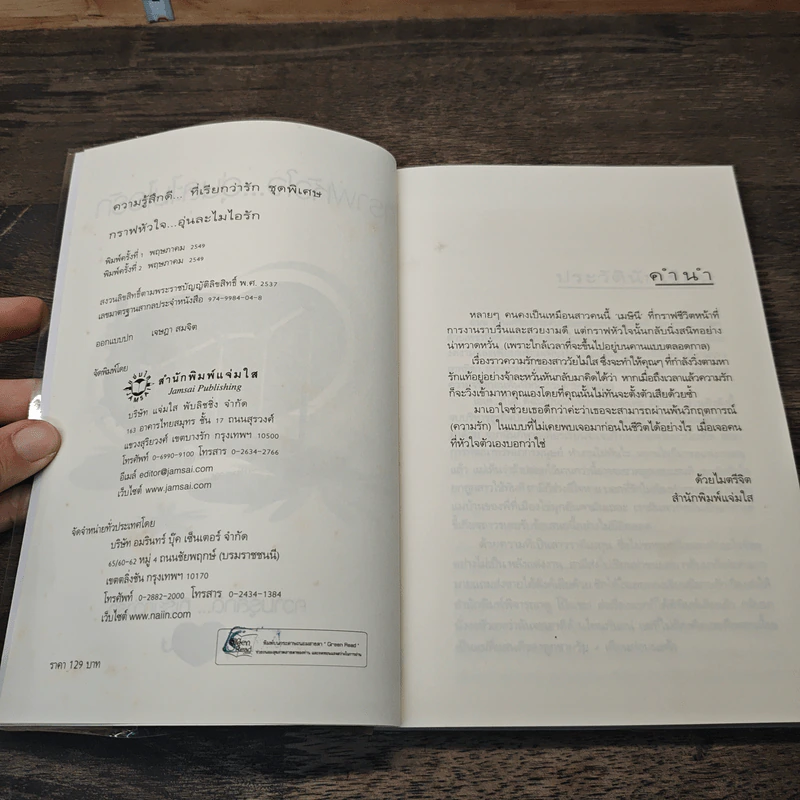 ความรู้สึกดี... ที่เรียกว่ารัก ชุดพิเศษ
กราฟหัวใจ...อุ่นละไมไอรัก
พิมพ์ครั้งที่ 1 พฤษภาคม 2549
พิมพ์ครั้งที่ 2 พฤษภาคม 2549
สงวนลิขสิทธิ์ตามพระราชบัญญัติลิขสิทธิ์ พ.ศ. 2537
เลขมาตรฐานสากลประจำหนังสือ 974-9984-04-8
ออกแบบปก เจษฎา สมจิต
จัดพิมพ์โดย
สำนักพิมพ์แจ่มใส
Jamsai Publishing
บริษัท แจ่มใส พับลิชชิ่ง จำกัด
163 อาคารไทยสมุทร ชั้น 17 ถนนสุรวงศ์
แขวงสุริยวงศ์ เขตบางรัก กรุงเทพฯ 10500
โทรศัพท์ 0-6990-9100 โทรสาร 0-2634-2766
อีเมล์ editor@jamsai.com
เว็บไซต์ www.jamsai.com
จัดจำหน่ายทั่วประเทศโดย
บริษัท อมรินทร์ บุ๊ค เซ็นเตอร์ จำกัด
65/60-62 หมู่ 4 ถนนชัยพฤกษ์ (บรมราชชนนี)
เขตตลิ่งชัน กรุงเทพฯ 10170
โทรศัพท์ 0-2882-2000 โทรสาร 0-2434-1384
เว็บไซต์ www.naiin.com
Green Read
พิมพ์บนกระดาษถนอมสายตา "Green Read"
ราคา 129 บาท
คำนำ
หลายๆ คนคงเป็นเหมือนสาวคนนี้ 'เมษินี' ที่กราฟชีวิตหน้าที่
การงานราบรื่นและสวยงามดี แต่กราฟหัวใจนั้นกลับนิ่งสนิทอย่าง
น่าหวาดหวั่น (เพราะใกล้เวลาที่จะขึ้นไปอยู่บนคานแบบตลอดกาล)
เรื่องราวความรักของสาววัยไม่ใส ซึ่งจะทำให้คุณๆ ที่กำลังวิ่งตามหา
รักแท้อยู่อย่างจ้าละหวั่นหันกลับมาคิดได้ว่า หากเมื่อถึงเวลาแล้วความรัก
ก็จะวิ่งเข้ามาหาคุณเองโดยที่คุณนั้นไม่ทันจะตั้งตัวเสียด้วยซ้ำ
มาเอาใจช่วยเธอดีกว่าค่ะว่าเธอจะสามารถผ่านพ้นวิกฤตการณ์
(ความรัก) ในแบบที่ไม่เคยพบเจอมาก่อนในชีวิตได้อย่างไร เมื่อเจอคน
ที่หัวใจตัวเองบอกว่าใช่
ด้วยไมตรีจิต
สำนักพิมพ์แจ่มใส